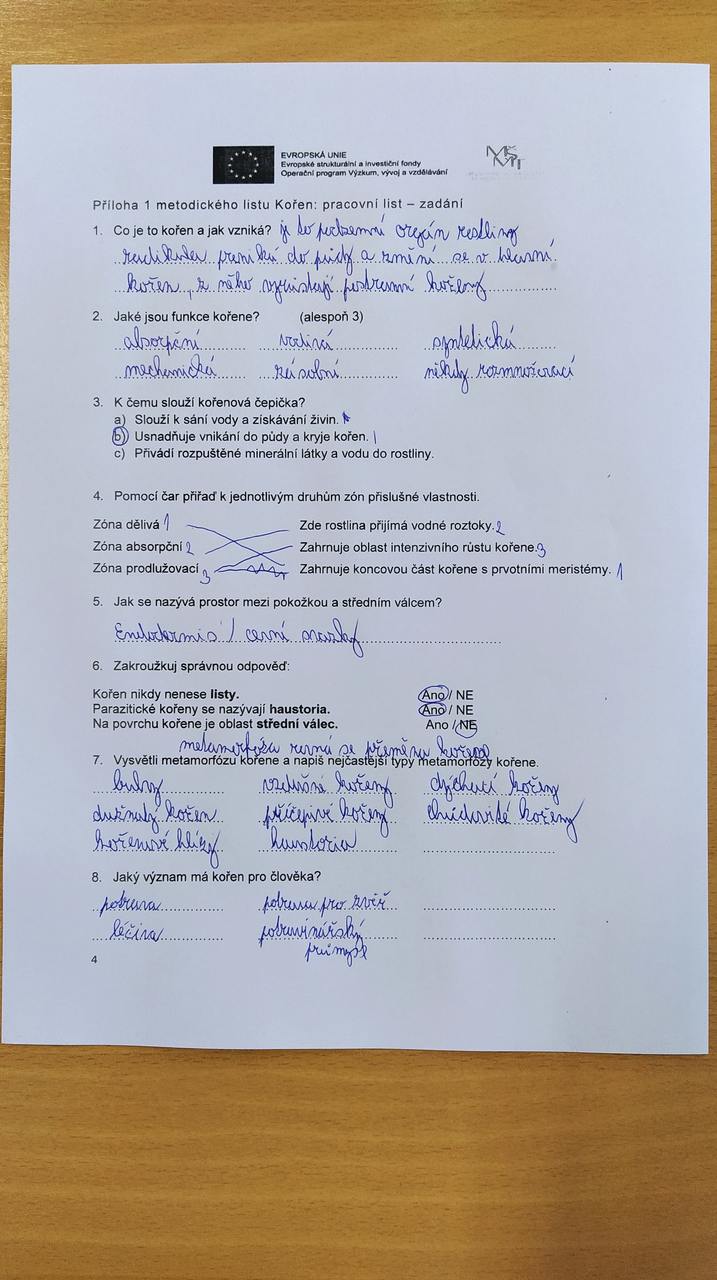 EVROPSKÁ UNIE
Evropské strukturální a investiční fondy
Operační program Výzkum, vývoj a vzdělávání
Příloha 1 metodického listu Kořen: pracovní list – zadání
1. Co je to kořen a jak vzniká? je to podzemní orgán rostliny
radikula proniká do půdy a změní se v hlavní
kořen, z něho vyrůstají postranní kořeny
2. Jaké jsou funkce kořene? (alespoň 3)
absorpční vodivá syntetická
mechanická zásobní někdy rozmnožovací
3. K čemu slouží kořenová čepička?
a) Slouží k sání vody a získávání živin.
b) Usnadňuje vnikání do půdy a kryje kořen.
c) Přivádí rozpuštěné minerální látky a vodu do rostliny.
4. Pomocí čar přiřaď k jednotlivým druhům zón příslušné vlastnosti.
Zóna dělivá 1 Zde rostlina přijímá vodné roztoky. 2
Zóna absorpční 2 Zahrnuje oblast intenzivního růstu kořene. 3
Zóna prodlužovací 3 Zahrnuje koncovou část kořene s prvotními meristémy. 1
5. Jak se nazývá prostor mezi pokožkou a středním válcem?
Endodermis / cevní svazky
6. Zakroužkuj správnou odpověď:
Kořen nikdy nenese listy. Ano / NE
Parazitické kořeny se nazývají haustoria. Ano / NE
Na povrchu kořene je oblast střední válec. Ano / NE
metamorfóza se přeměna kořene
7. Vysvětli metamorfózu kořene a napiš nejčastější typy metamorfózy kořene.
bulvy vzdušné kořeny dýchací kořeny
dužnatý kořen příčepivé kořeny chůdovité kořeny
kořenové hlízy haustoria
8. Jaký význam má kořen pro člověka?
potrava potrava pro zvěř
léčiva potravinářský
průmysl
4